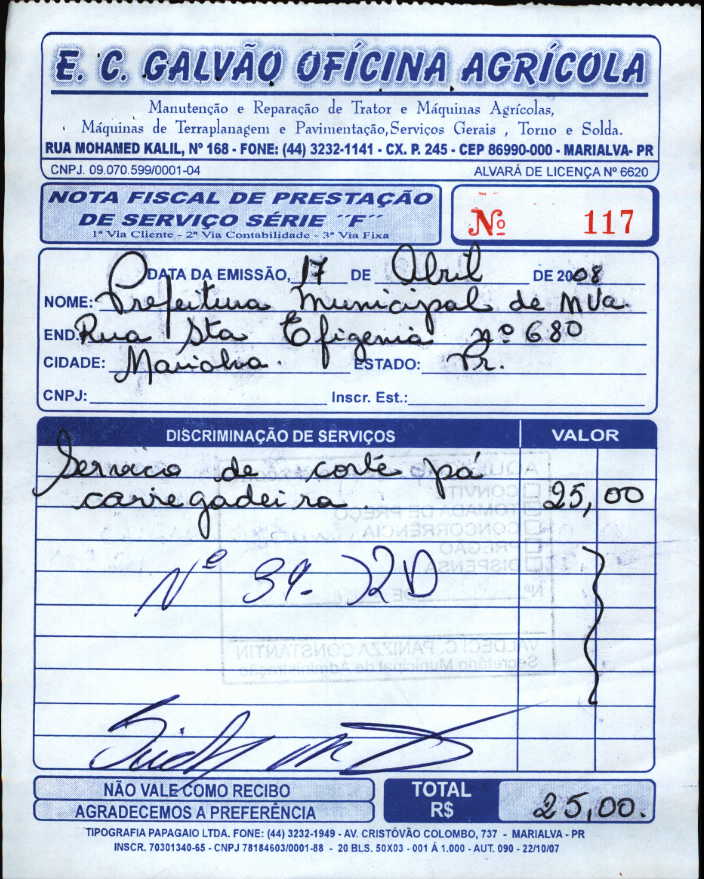 E. C. GALVÃO OFÍCINA AGRÍCOLA
Manutenção e Reparação de Trator e Máquinas Agrícolas,
Máquinas de Terraplanagem e Pavimentação, Serviços Gerais , Torno e Solda.
RUA MOHAMED KALIL, Nº 168 - FONE: (44) 3232-1141 - CX. P. 245 - CEP 86990-000 - MARIALVA- PR
CNPJ. 09.070.599/0001-04 ALVARÁ DE LICENÇA Nº 6620
NOTA FISCAL DE PRESTAÇÃO
DE SERVIÇO SÉRIE "F"
1ª Via Cliente - 2ª Via Contabilidade - 3ª Via Fixa
Nº 117
DATA DA EMISSÃO, 17 DE Abril DE 2008
NOME: Prefeitura Municipal de Mva.
END. Rua Sta Efigenia nº 680
CIDADE: Marialva. ESTADO: Pr.
CNPJ: Inscr. Est.:
DISCRIMINAÇÃO DE SERVIÇOS VALOR
Serviço de corte pá
carregadeira 25,00
AQUISIÇÃO
CONVITE
TOMADA DE PREÇO
CONCORRÊNCIA
PREGÃO
DISPENSA
Nº DE
VALDECI C. PANIZZA CONSTANTIN
Secretário Municipal de Administração
Nº
NÃO VALE COMO RECIBO
AGRADECEMOS A PREFERÊNCIA
TOTAL
R$ 25,00.
TIPOGRAFIA PAPAGAIO LTDA. FONE: (44) 3232-1949 - AV. CRISTÓVÃO COLOMBO, 737 - MARIALVA - PR
INSCR. 70301340-65 - CNPJ 78184603/0001-88 - 20 BLS. 50X03 - 001 Á 1.000 - AUT. 090 - 22/10/07